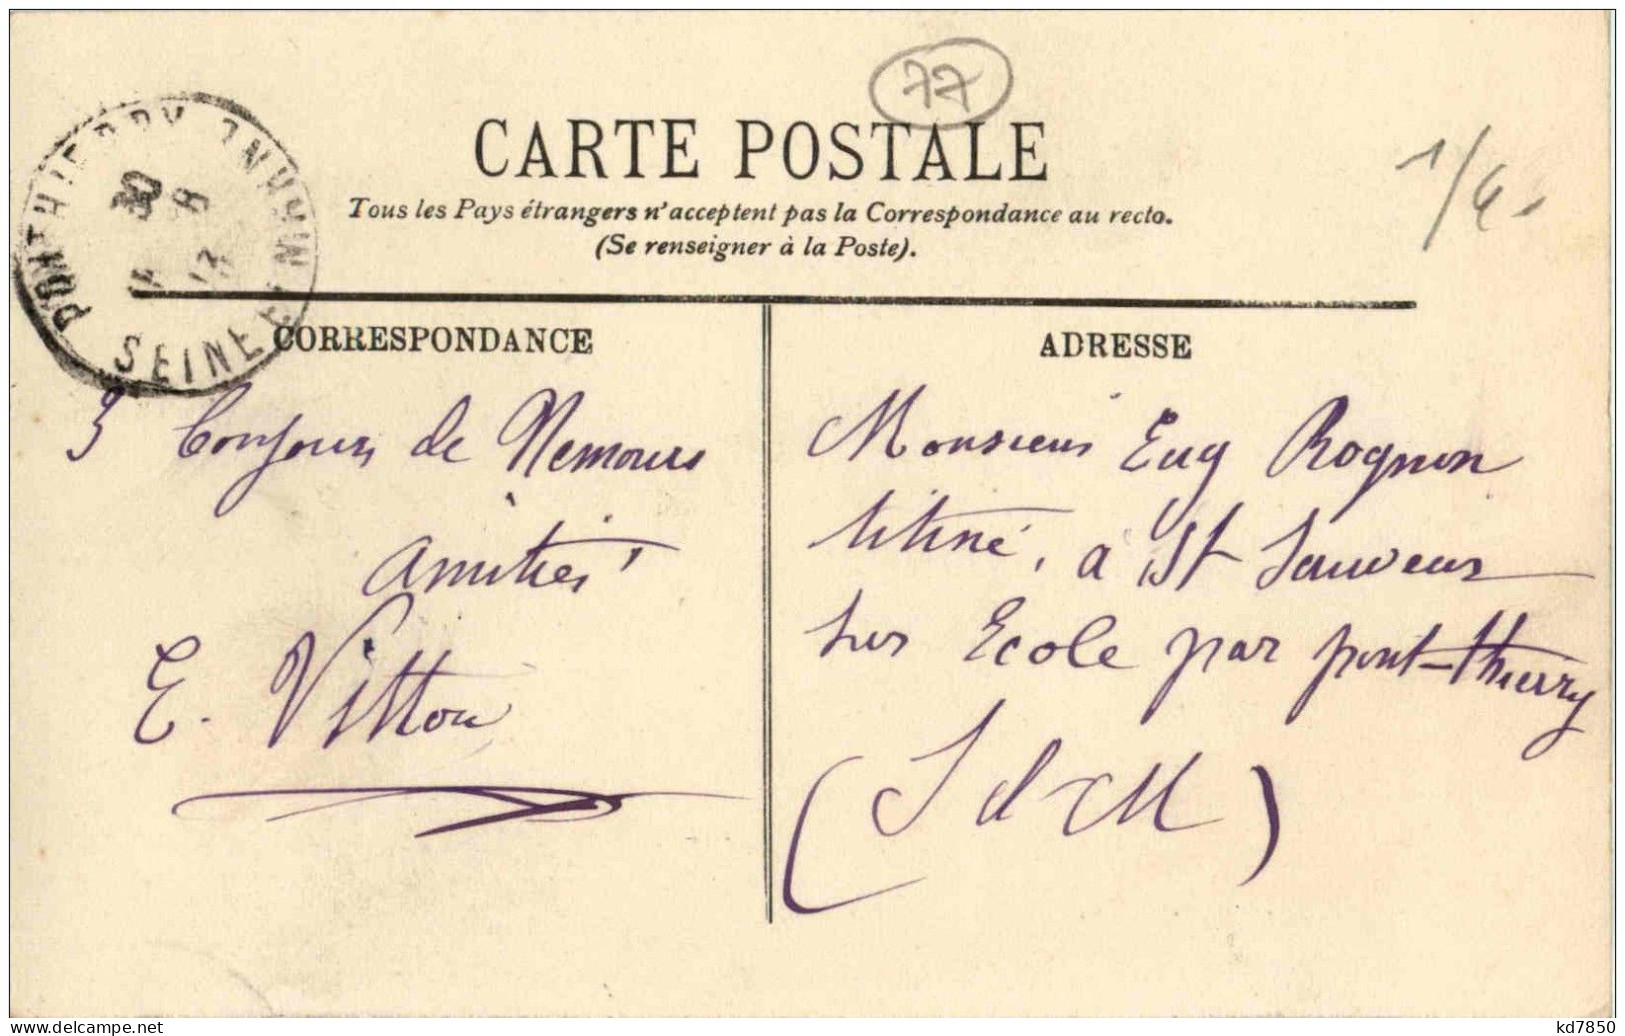 77
CARTE POSTALE
1/4
Tous les Pays étrangers n'acceptent pas la Correspondance au recto.
(Se renseigner à la Poste).
PONTHIERRY SEINE ET MARNE
30
8
13
CORRESPONDANCE
3 bonjours de Nemours
Amitiés
E. Vitton
ADRESSE
Monsieur Eug Rognon
titiné, à St Sauveur
sur Ecole par pont-thierry
(S et M)
www.delcampe.net
kd7850